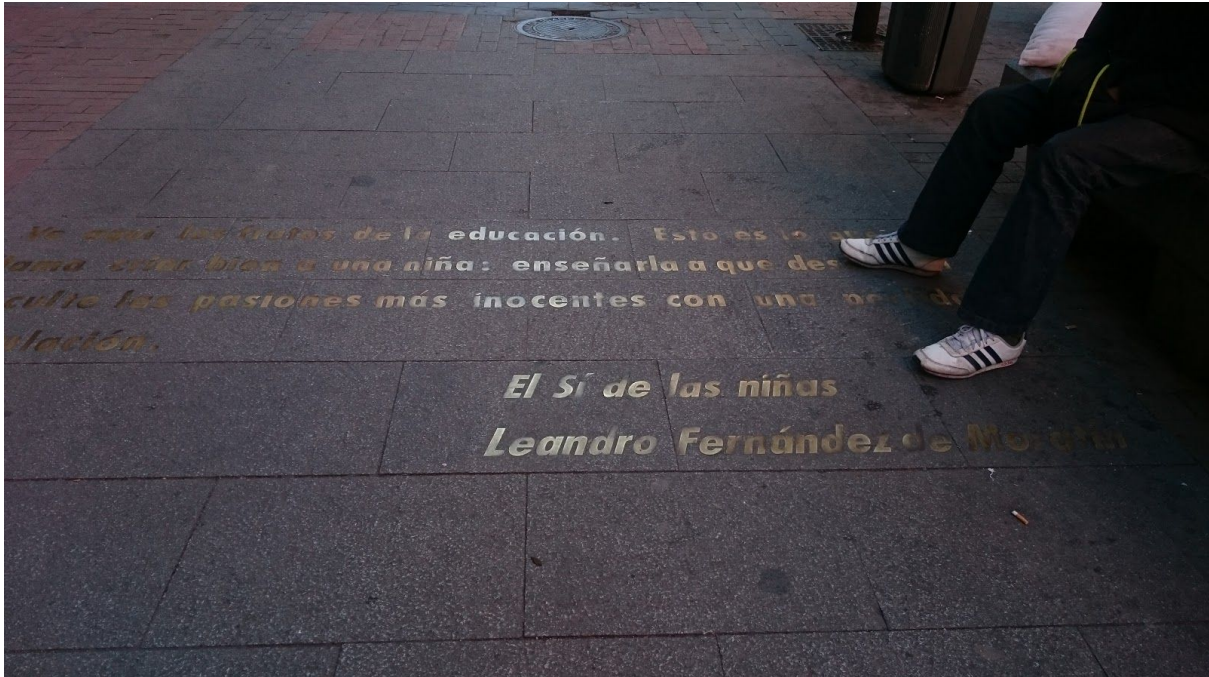 Ve aquí los frutos de la educación. Esto es lo que
llama criar bien a una niña: enseñarla a que des
oculte las pasiones más inocentes con una
ulación.
El Sí de las niñas
Leandro Fernández de Moratín